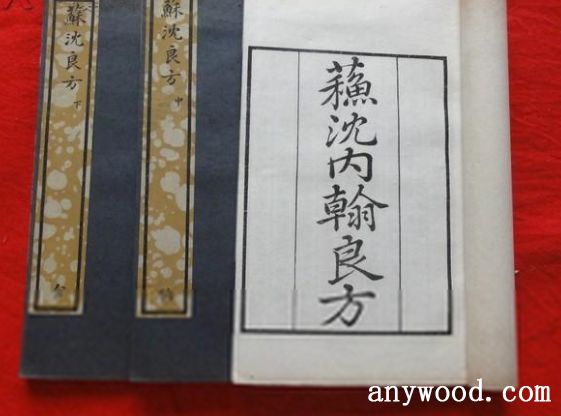 蘓沈内翰良方
蘇沈良方 中
蘇沈良方 下
anywood.com